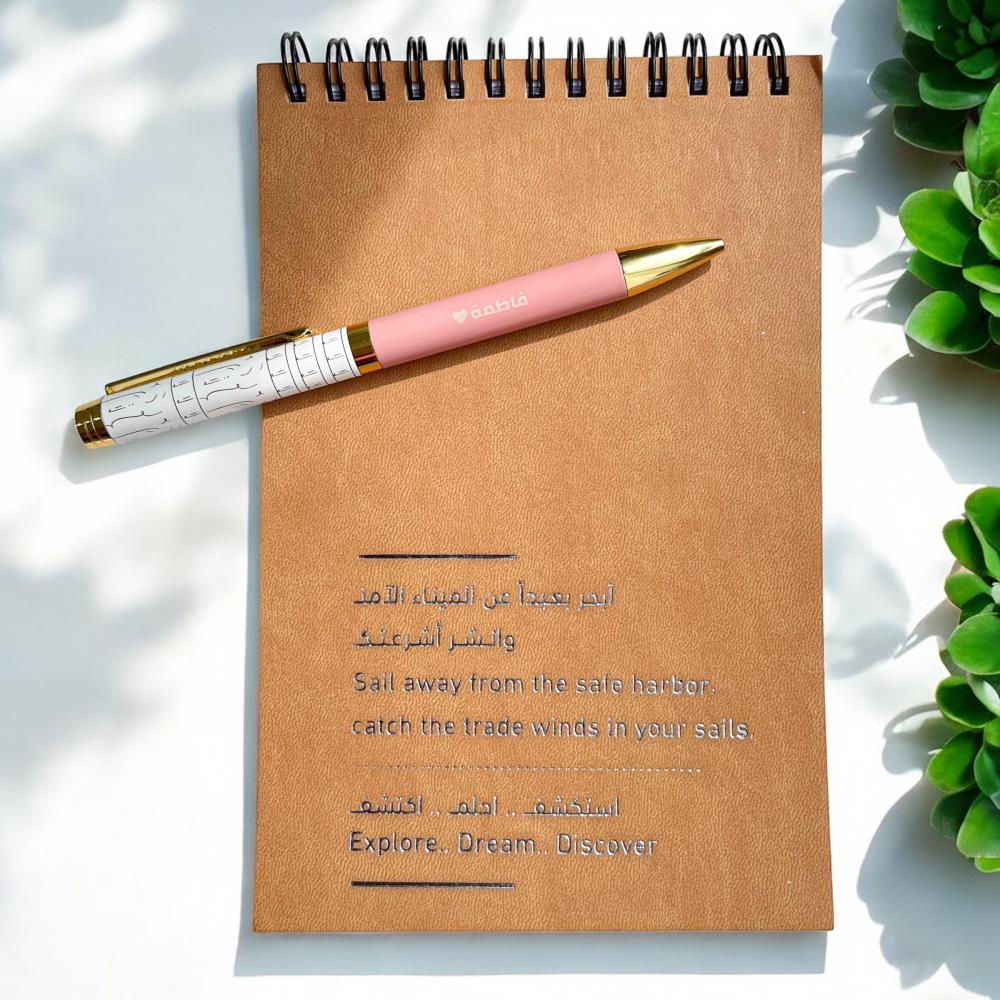 فاطمة
أبحر بعيداً عن الميناء الآمن
وانشر أشرعتك
Sail away from the safe harbor.
catch the trade winds in your sails.
استكشف .. احلم .. اكتشف
Explore.. Dream.. Discover